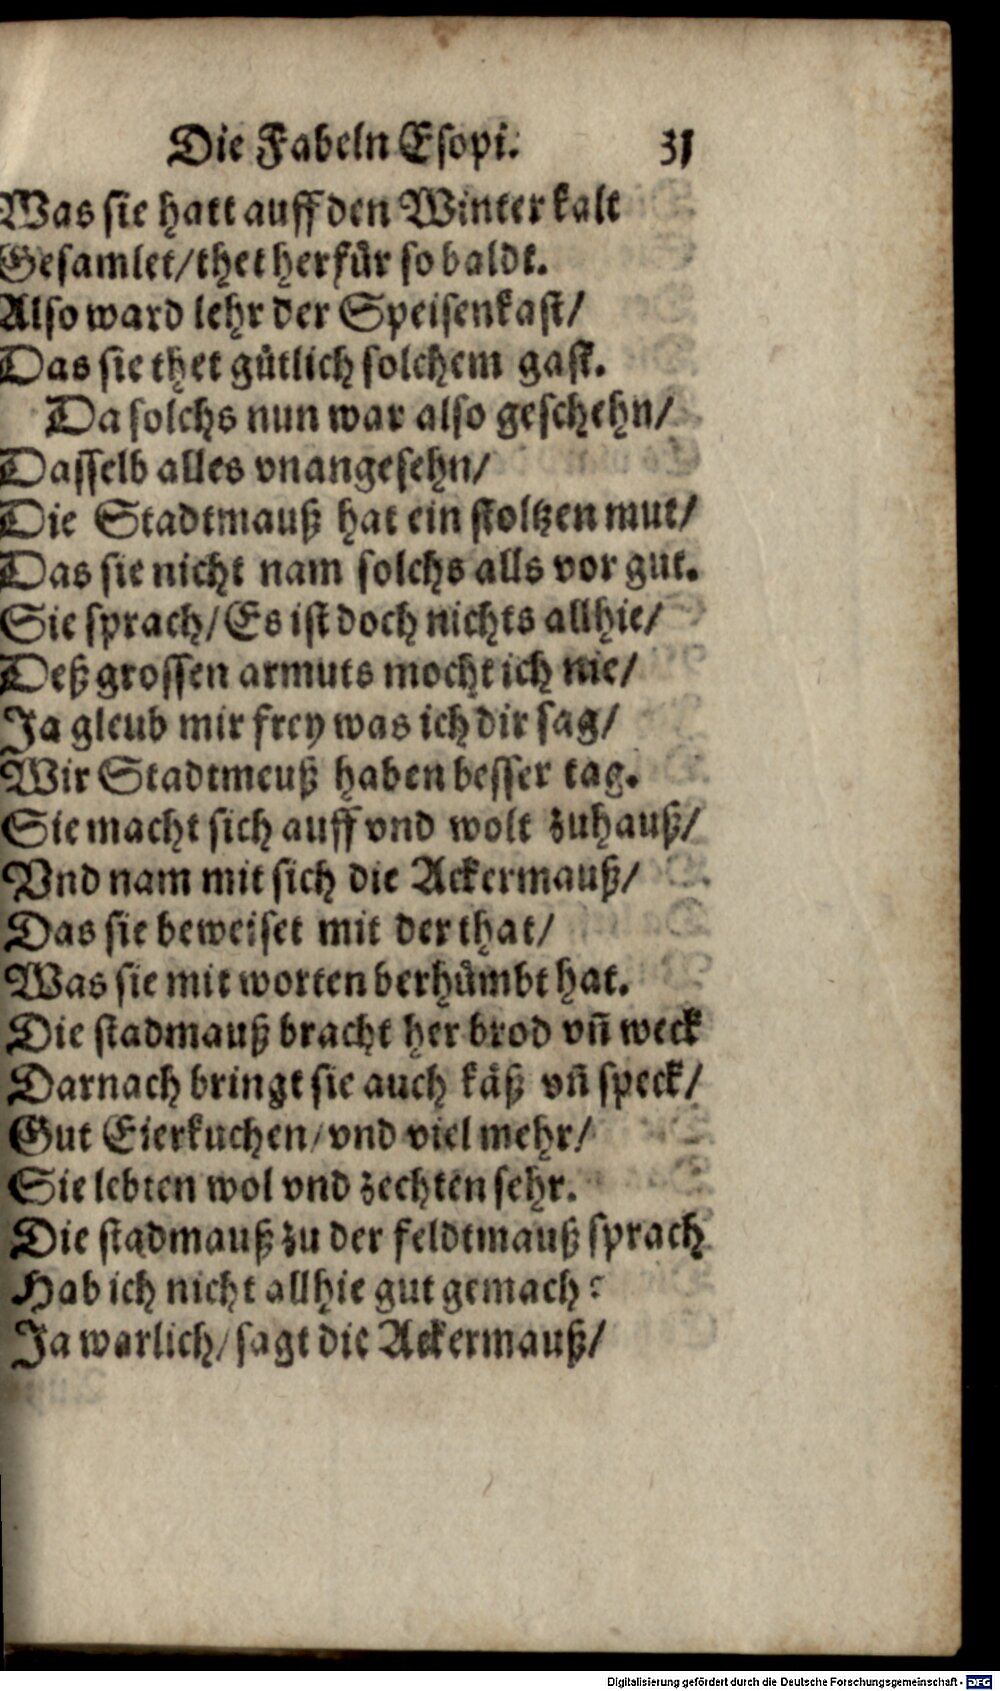 Die Fabeln Esopi. 31
Was sie hatt auff den Winter kalt
Gesamlet/thet herfuͤr so baldt.
Also ward lehr der Speisenkast/
Das sie thet guͤtlich solchem gast.
Da solchs nun war also geschehn/
Dasselb alles vnangesehn/
Die Stadtmauß hat ein stoltzen mut/
Das sie nicht nam solchs alls vor gut.
Sie sprach/Es ist doch nichts allhie/
Deß grossen armuts mocht ich nie/
Ja gleub mir frey was ich dir sag/
Wir Stadtmeuß haben besser tag.
Sie macht sich auff vnd wolt zuhauß/
Vnd nam mit sich die Ackermauß/
Das sie beweiset mit der that/
Was sie mit worten berhuͤmbt hat.
Die stadmauß bracht her brod vñ weck
Darnach bringt sie auch kaͤß vñ speck/
Gut Eierkuchen/vnd viel mehr/
Sie lebten wol vnd zechten sehr.
Die stadmauß zu der feldtmauß sprach
Hab ich nicht allhie gut gemach?
Ja warlich/sagt die Ackermauß/
Digitalisierung gefördert durch die Deutsche Forschungsgemeinschaft - DFG